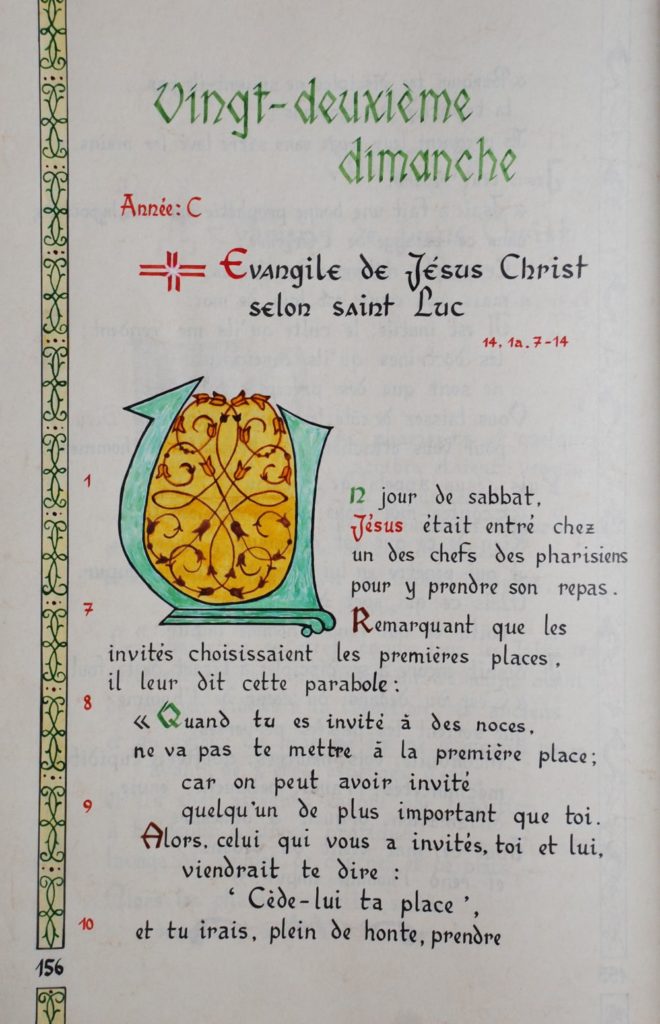 Vingt-deuxième
dimanche
Année: C
Evangile de Jésus Christ
selon saint Luc
14, 1a. 7-14
1
Un jour de sabbat,
Jésus était entré chez
un des chefs des pharisiens
pour y prendre son repas.
7
Remarquant que les
invités choisissaient les premières places,
il leur dit cette parabole:
8
« Quand tu es invité à des noces,
ne va pas te mettre à la première place;
car on peut avoir invité
9
quelqu'un de plus important que toi.
Alors, celui qui vous a invités, toi et lui,
viendrait te dire :
' Cède-lui ta place ',
10
et tu irais, plein de honte, prendre
156